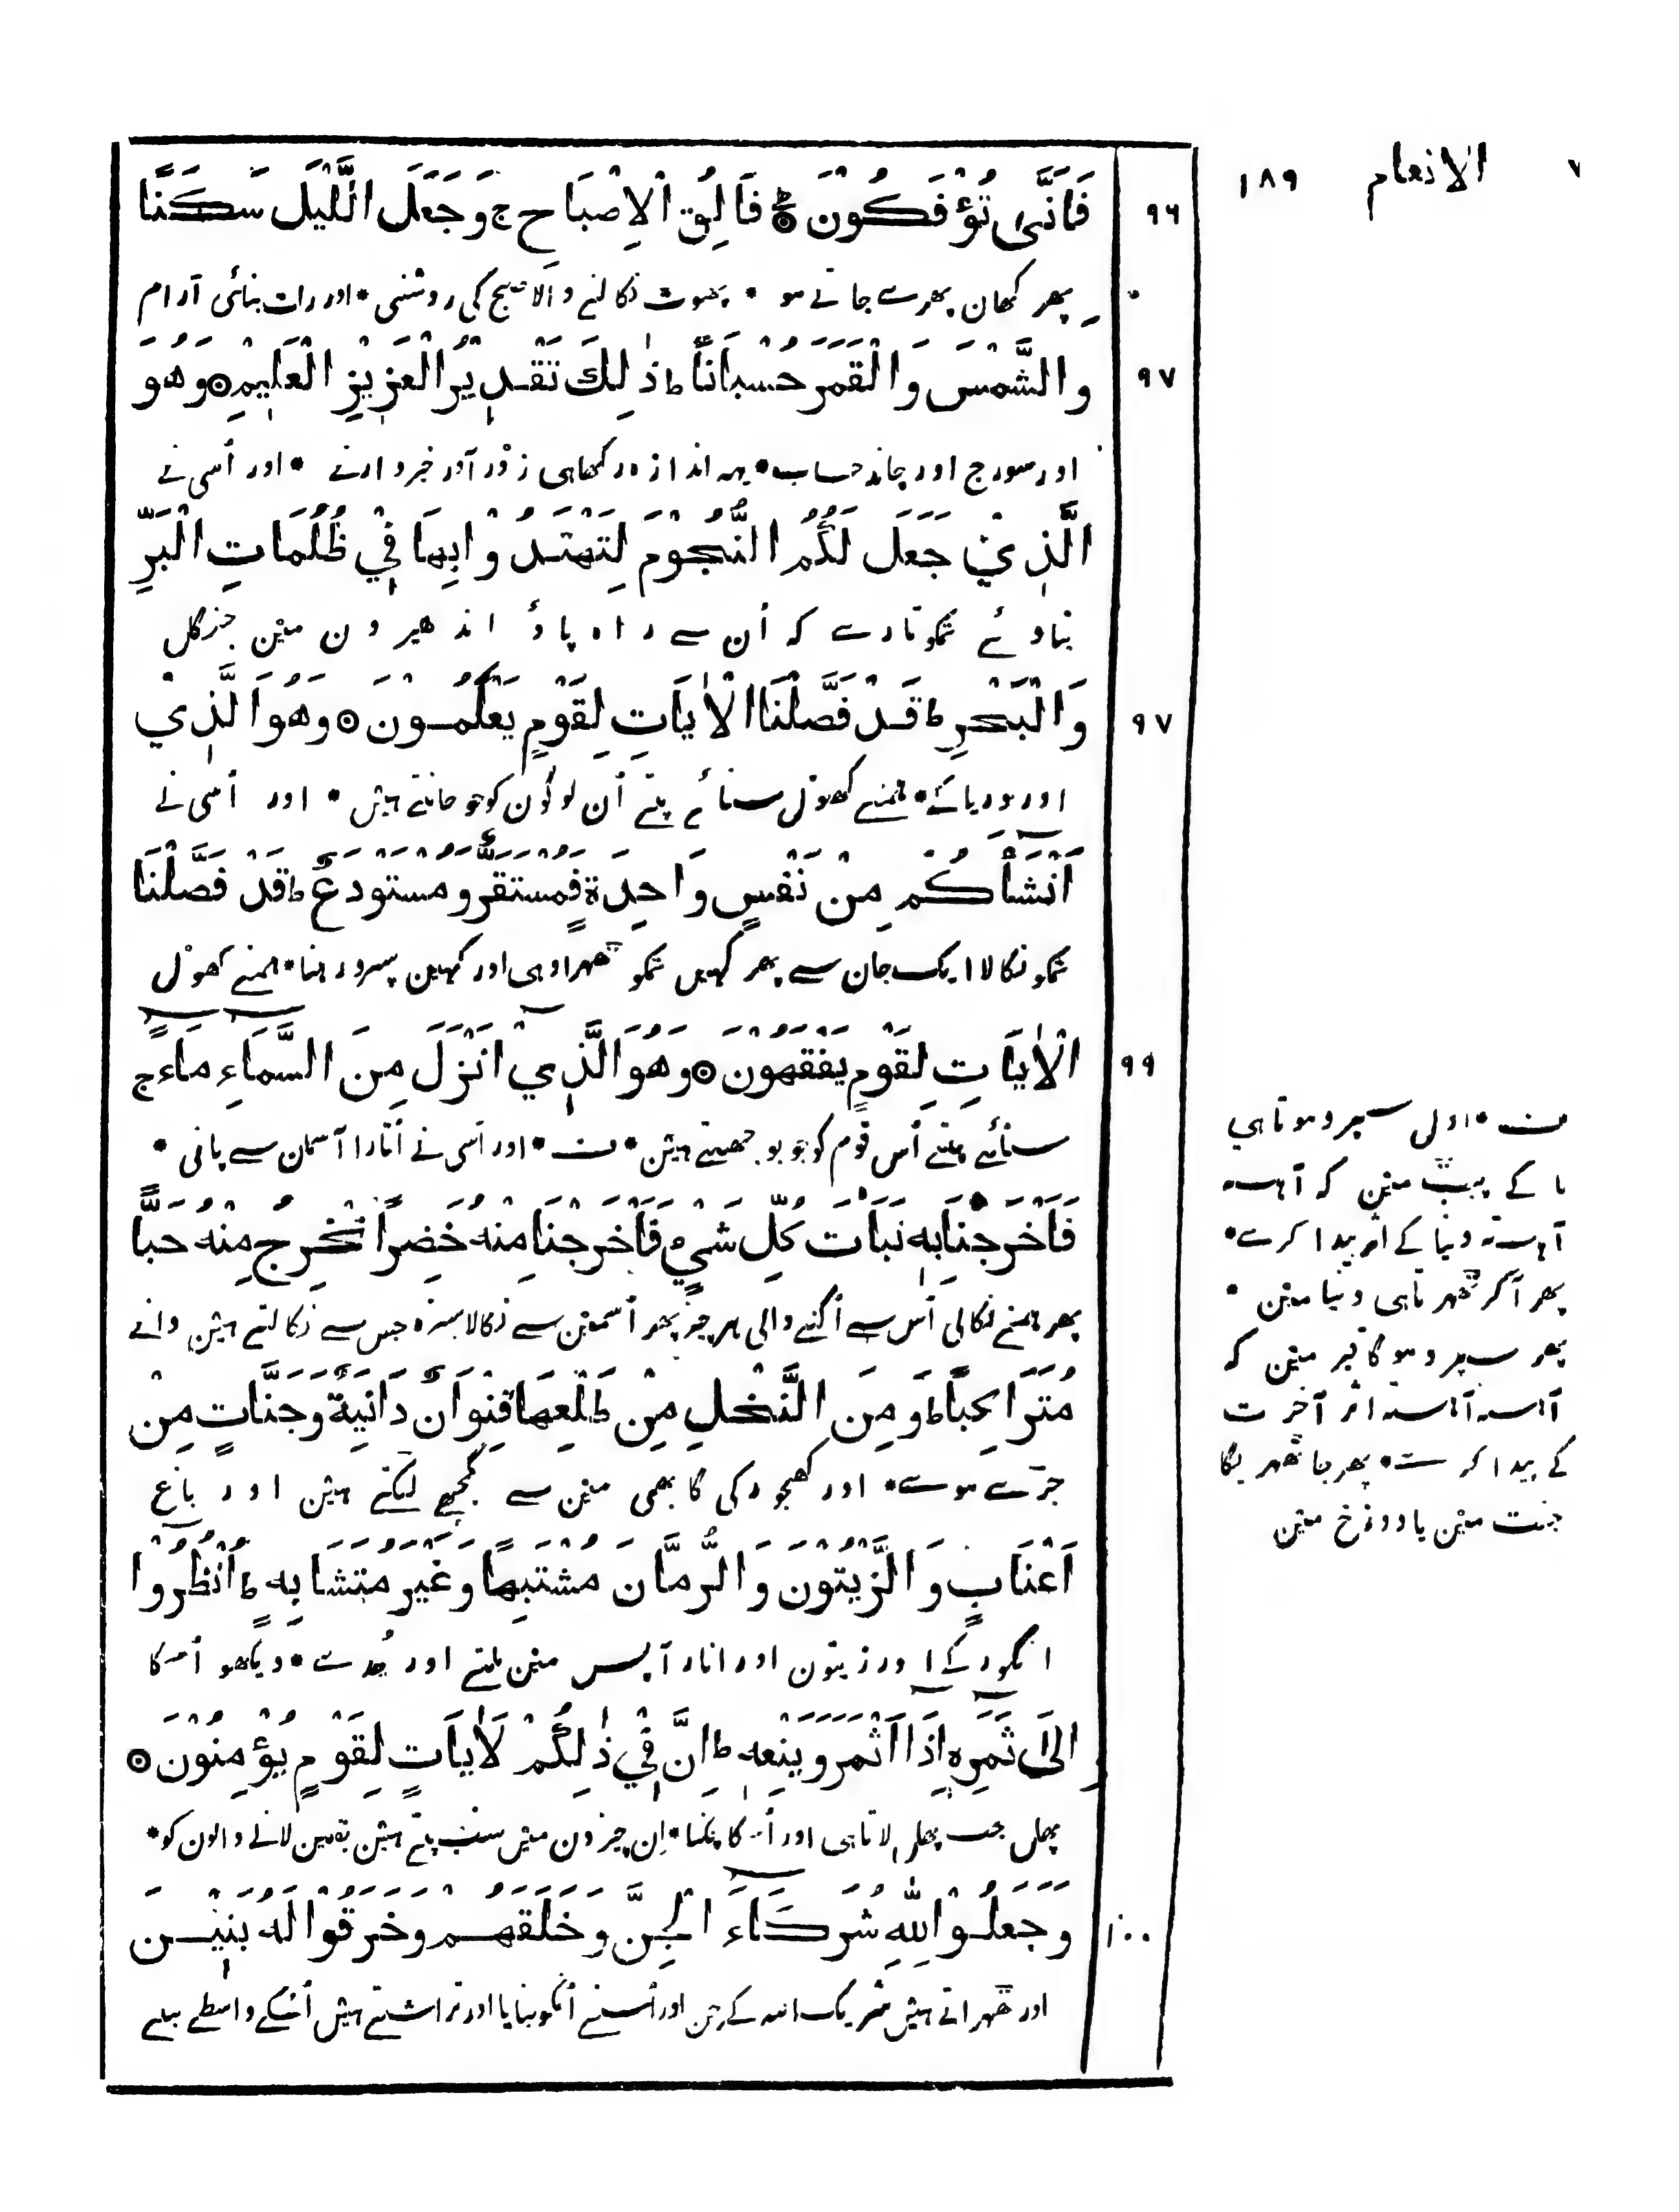 ٧ الانعام ١٨٩
٩٦ فَاَنّٰى تُؤْفَكُوْنَ ۞ فَالِقُ الْاِصْبَاحِ ج وَجَعَلَ الَّيْلَ سَكَنًا
پھر کھان پھرے جاتے هو * پھوت نکالنے والا صبح کی روشنی * اور رات بنائی آرام
٩٧ وَالشَّمْسَ وَالْقَمَرَ حُسْبَانًا ط ذٰلِكَ تَقْدِيْرُ الْعَزِيْزِ الْعَلِيْمِ ۞ وَهُوَ
اور سورج اور چاند حساب * یہہ اندازه رکھاهی زور آور خبردارنے * اور اُسی نے
الَّذِيْ جَعَلَ لَكُمُ النُّجُوْمَ لِتَهْتَدُوْا بِهَا فِيْ ظُلُمَاتِ الْبَرِّ
بنادئے تمکو تارے کہ اُن سے راه پاوٴ اندهیرون مین جنگل
٩٧ وَالْبَحْرِ ط قَدْ فَصَّلْنَا الْاٰيَاتِ لِقَوْمٍ يَعْلَمُوْنَ ۞ وَهُوَ الَّذِيْ
اور دریاکے * همنے کھول سنائے پتے اُن لوگون کو جو جانتے هین * اور اُسی نے
اَنْشَأَكُمْ مِنْ نَفْسٍ وَاحِدَةٍ فَمُسْتَقَرٌّ وَمُسْتَوْدَعٌ ط قَدْ فَصَّلْنَا
تمکو نکالا ایک جان سے پھر کہین تمکو ٹھہراوهی اور کہین سپرد رهنا * همنے کھول
٩٩ الْاٰيَاتِ لِقَوْمٍ يَفْقَهُوْنَ ۞ وَهُوَ الَّذِيْ اَنْزَلَ مِنَ السَّمَاءِ مَاءً ج
سنائے پتے اُس قوم کو جو بوجھتے هین * ف * اور اُسی نے اُتارا آسمان سے پانی *
فَاَخْرَجْنَا بِهٖ نَبَاتَ كُلِّ شَيْءٍ فَاَخْرَجْنَا مِنْهُ خَضِرًا نُخْرِجُ مِنْهُ حَبًّا
پھر همنے نکالی اُس سے اُگنے والی هر چیز پھر اُسمین سے نکالا سبزه جس سے نکالتے هین دانے
مُتَرَاكِبًا ط وَمِنَ النَّخْلِ مِنْ طَلْعِهَا قِنْوَانٌ دَانِيَةٌ وَجَنَّاتٍ مِنْ
جڑے هوے * اور کھجور کی گابھی مین سے گچھے لٹکتے هین اور باغ
اَعْنَابٍ وَالزَّيْتُوْنَ وَالرُّمَّانَ مُشْتَبِهًا وَغَيْرَ مُتَشَابِهٍ ط اُنْظُرُوْا
انگور کے اور زیتون اور انار آپس مین ملتے اور جدے * دیکھو اُسکا
اِلٰى ثَمَرِهٖ اِذَا اَثْمَرَ وَيَنْعِهٖ ط اِنَّ فِيْ ذٰلِكُمْ لَاٰيَاتٍ لِقَوْمٍ يُؤْمِنُوْنَ ۞
پھل جب پھل لاتاهی اور اُسکا پکنا * اِن چیزون مین سب پتے هین یقین لانے والون کو *
١٠٠ وَجَعَلُوْا لِلّٰهِ شُرَكَاءَ الْجِنَّ وَخَلَقَهُمْ وَخَرَقُوْا لَهُ بَنِيْنَ
اور ٹھہراتے هین شریک الله کے جن اور اُسنے اُنکو بنایا اور تراشتے هین اُسکے واسطے بیٹے
ف * اول سپرد هوتاهی
ما کے پیٹ مین کہ آهسته
آهسته دنیا کے اثر پیدا کرے *
پھر آکر ٹھہرتاهی دنیا مین *
پھر سپرد هوگا قبر مین کہ
آهسته آهسته اثر آخرت
کے پیدا کرے * پھر جا ٹھہریگا
جنت مین یا دوزخ مین